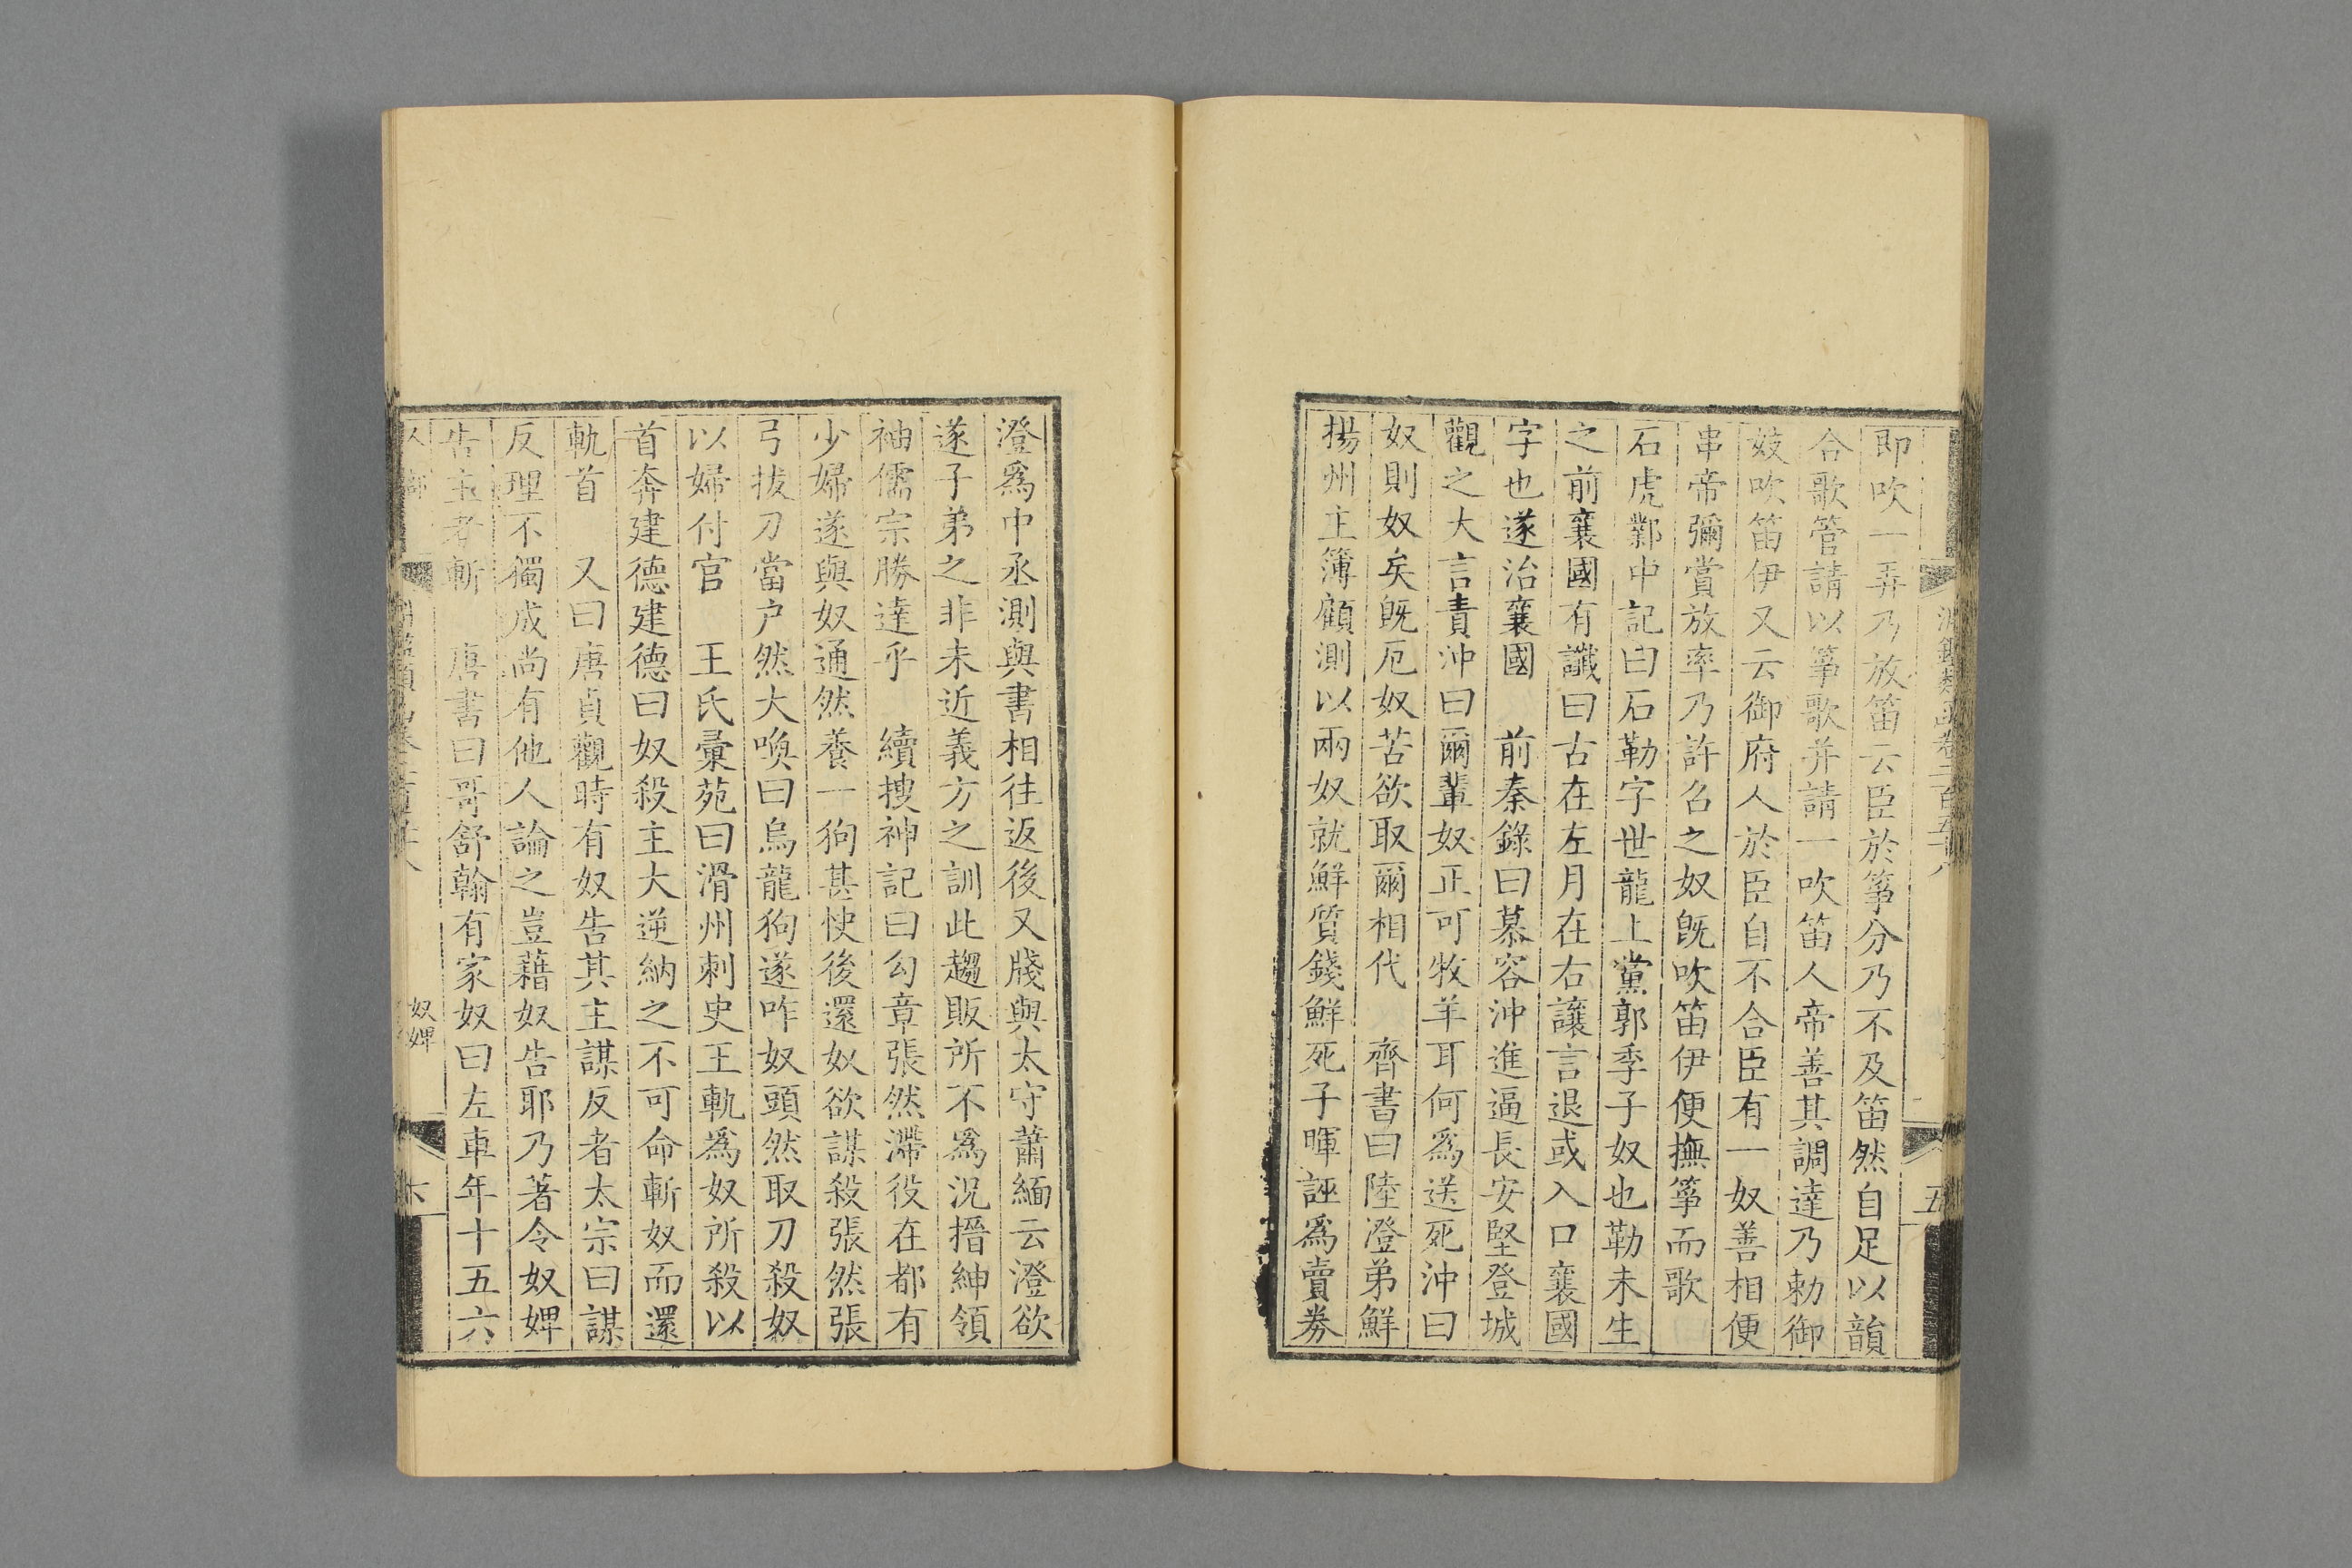 淵鑑類函卷二百五十八
五
即吹一弄乃放笛云臣於筝分乃不及笛然自足以韻
合歌管請以筝歌并請一吹笛人帝善其調達乃勅御
妓吹笛伊又云御府人於臣自不合臣有一奴善相便
串帝彌賞放率乃許召之奴旣吹笛伊便撫筝而歌
石虎鄴中記曰石勒字世龍上黨郭季子奴也勒未生
之前襄國有讖曰古在左月在右讓言退或入口襄國
字也遂治襄國　前秦錄曰慕容沖進逼長安堅登城
觀之大言責沖曰爾輩奴正可牧羊耳何爲送死沖曰
奴則奴矣旣厄奴苦欲取爾相代　齊書曰陸澄弟鮮
揚州主簿顧測以兩奴就鮮質錢鮮死子暉誣爲賣券
澄爲中丞測與書相往返後又牋與太守蕭緬云澄欲
遂子弟之非未近義方之訓此趨販所不爲況搢紳領
袖儒宗勝達乎　續搜神記曰勾章張然滯役在都有
少婦遂與奴通然養一狗甚快後還奴欲謀殺張然張
弓拔刀當户然大喚曰烏龍狗遂咋奴頭然取刀殺奴
以婦付官　王氏彙苑曰滑州刺史王軌爲奴所殺以
首奔建德建德曰奴殺主大逆納之不可命斬奴而還
軌首　又曰唐貞觀時有奴告其主謀反者太宗曰謀
反理不獨成尚有他人論之豈藉奴告耶乃著令奴婢
告主者斬　唐書曰哥舒翰有家奴曰左車年十五六
奴婢
六